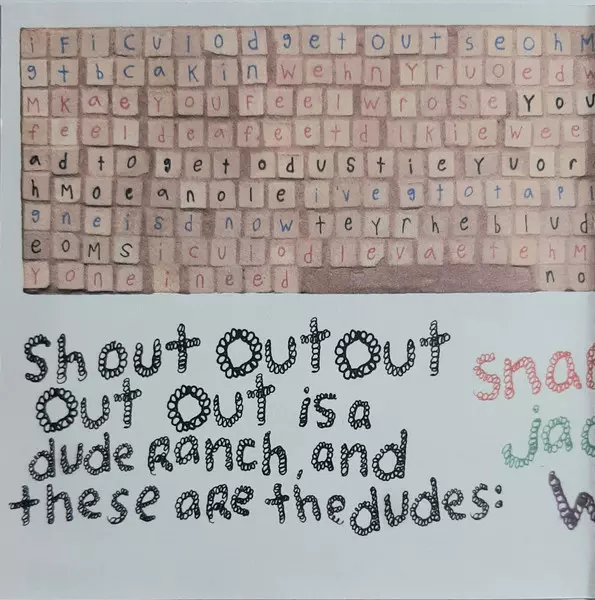 iFiCulodgetoutseohM
gtbcaKinwehnYruoedw
MKaeYOUFeelwroseYou
feeldeafeetdlkiewee
adtogetodustieYuor
hMoeanolei'vegtotapl
gneisdnowteyrheblud
eoMSiculodlevaetehM
Yoneineed no
Shout Out Out
Out Out is a
dude Ranch, and
these are the dudes: